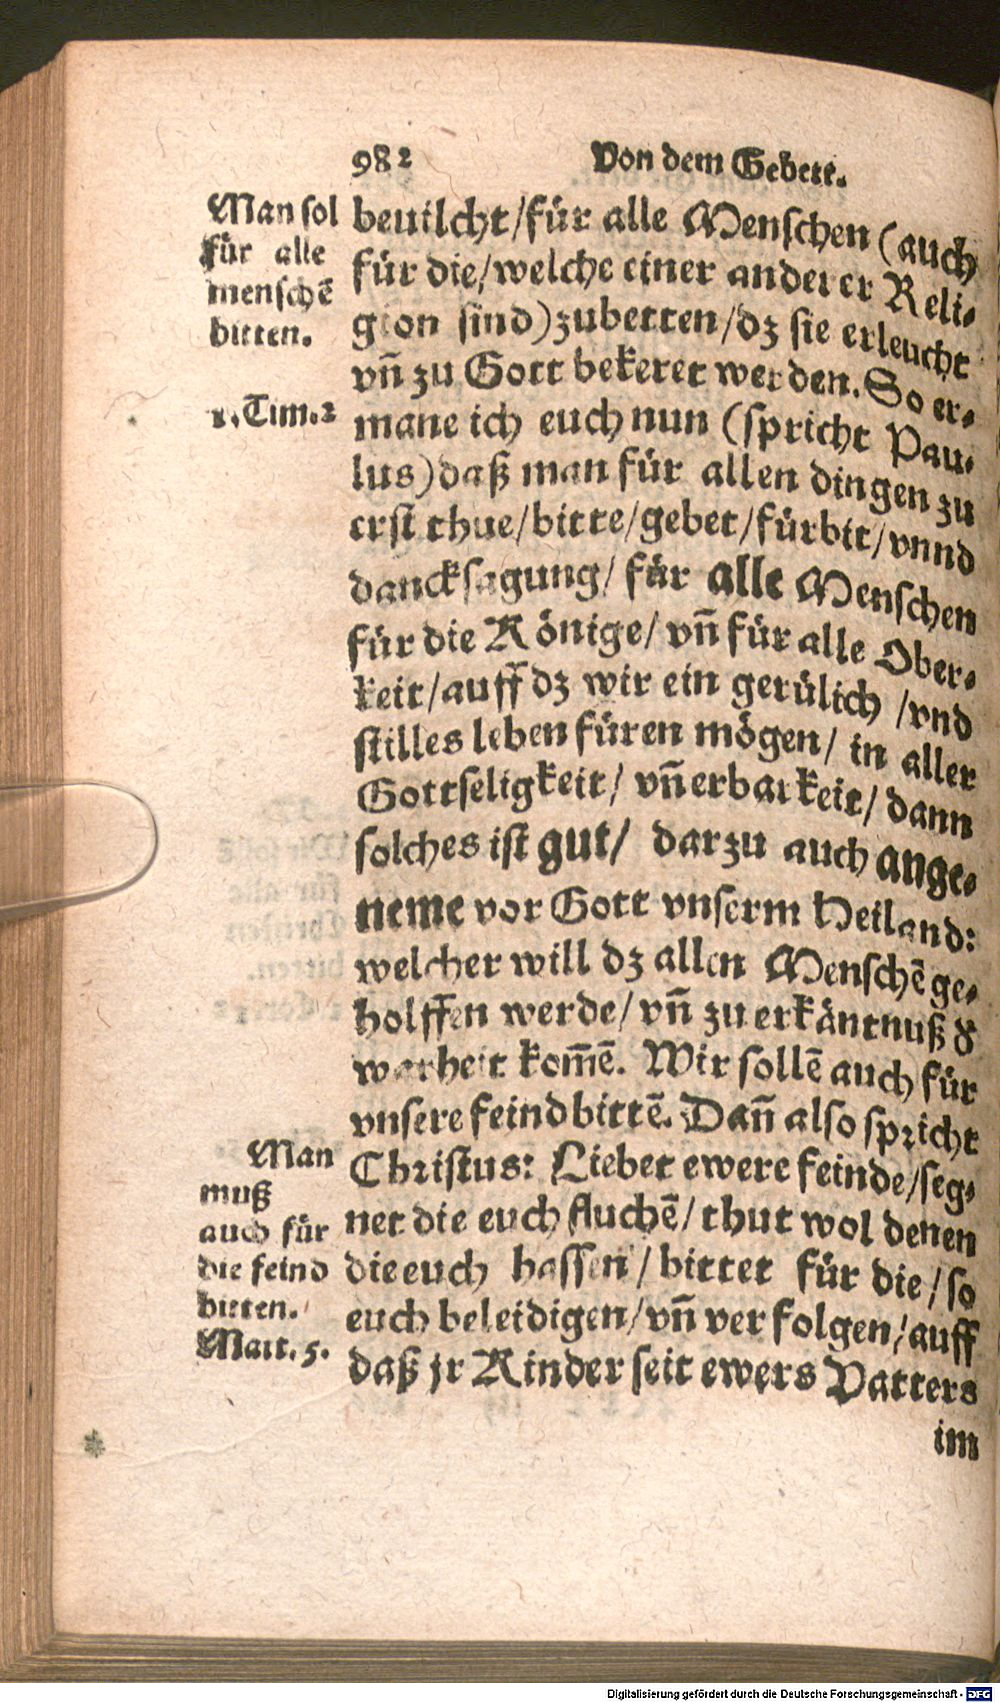 982 Von dem Gebett.
Man sol
für alle
menschē
bitten.
1. Tim. 2
beuilcht / für alle Menschen (auch
für die / welche einer anderer Reli⸗
gion sind) zubetten / dz sie erleucht
vñ zu Gott bekeret werden. So er⸗
mane ich euch nun (spricht Pau⸗
lus) daß man für allen dingen zu
erst thue / bitte / gebet / fürbit / vnnd
dancksagung / für alle Menschen
für die Könige / vñ für alle Ober⸗
keit / auff dz wir ein gerülich / vnd
stilles leben füren mögen / in aller
Gottseligkeit / vñ erbarkeit / dann
solches ist gut / darzu auch ange⸗
neme vor Gott vnserm Heiland:
welcher will dz allen Menschē ge⸗
holffen werde / vñ zu erkäntnuß d̕
warheit kom̄ē. Wir sollē auch für
vnsere feind bittē. Dañ also spricht
Christus: Liebet ewere feinde / seg⸗
net die euch fluchē / thut wol denen
die euch hassen / bittet für die / so
euch beleidigen / vñ verfolgen / auff
daß jr Kinder seit ewers Vatters
Man
muß
auch für
die feind
bitten.
Matt. 5.
im
Digitalisierung gefördert durch die Deutsche Forschungsgemeinschaft - DFG